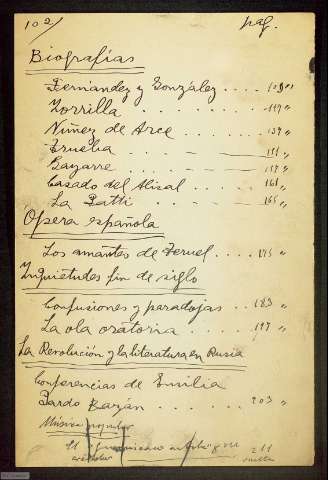 102/ pag.
Biografías
Fernández y González . . . . 109 "
Zorrilla . . . . . . . 119 "
Núñez de Arce . . . . . 139 "
Trueba 151 "
Gayarre 157 "
Casado del Alisal 161 "
La Patti 165 "
Ópera española
Los amantes de Teruel . . 175 "
Inquietudes fin de siglo
Confusiones y paradojas . . . 183 "
La ola oratoria . . . . 197 "
La Revolución y la literatura en Rusia
Conferencias de Emilia
Pardo Bazán . . . . . . 203 "
Música popular
El 211